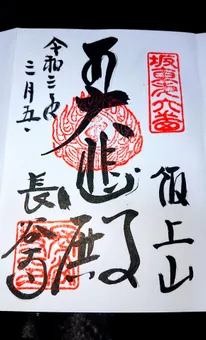 坂東第六番
飯上山
大悲殿
長谷寺
令和三年
三月五日